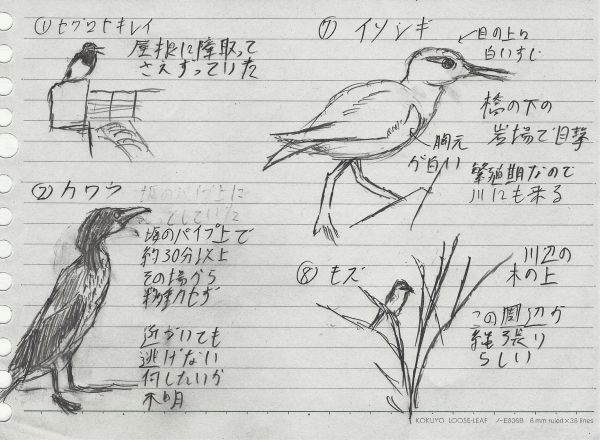 ① セグロセキレイ
屋根に陣取って
さえずっていた
② カワウ
堰のパイプ上で
約30分以上
その場から
微動だせず
近づいても
逃げない
何したいか
不明
⑦ イソシギ
目の上に
白いすじ
橋の下の
岩場で目撃
胸元
が白い
繁殖期なので
川にも来る
⑧ モズ
川辺の
木の上
この周辺が
縄張り
らしい
KOKUYO LOOSE-LEAF ノ-E836B 6 mm ruled×36 lines